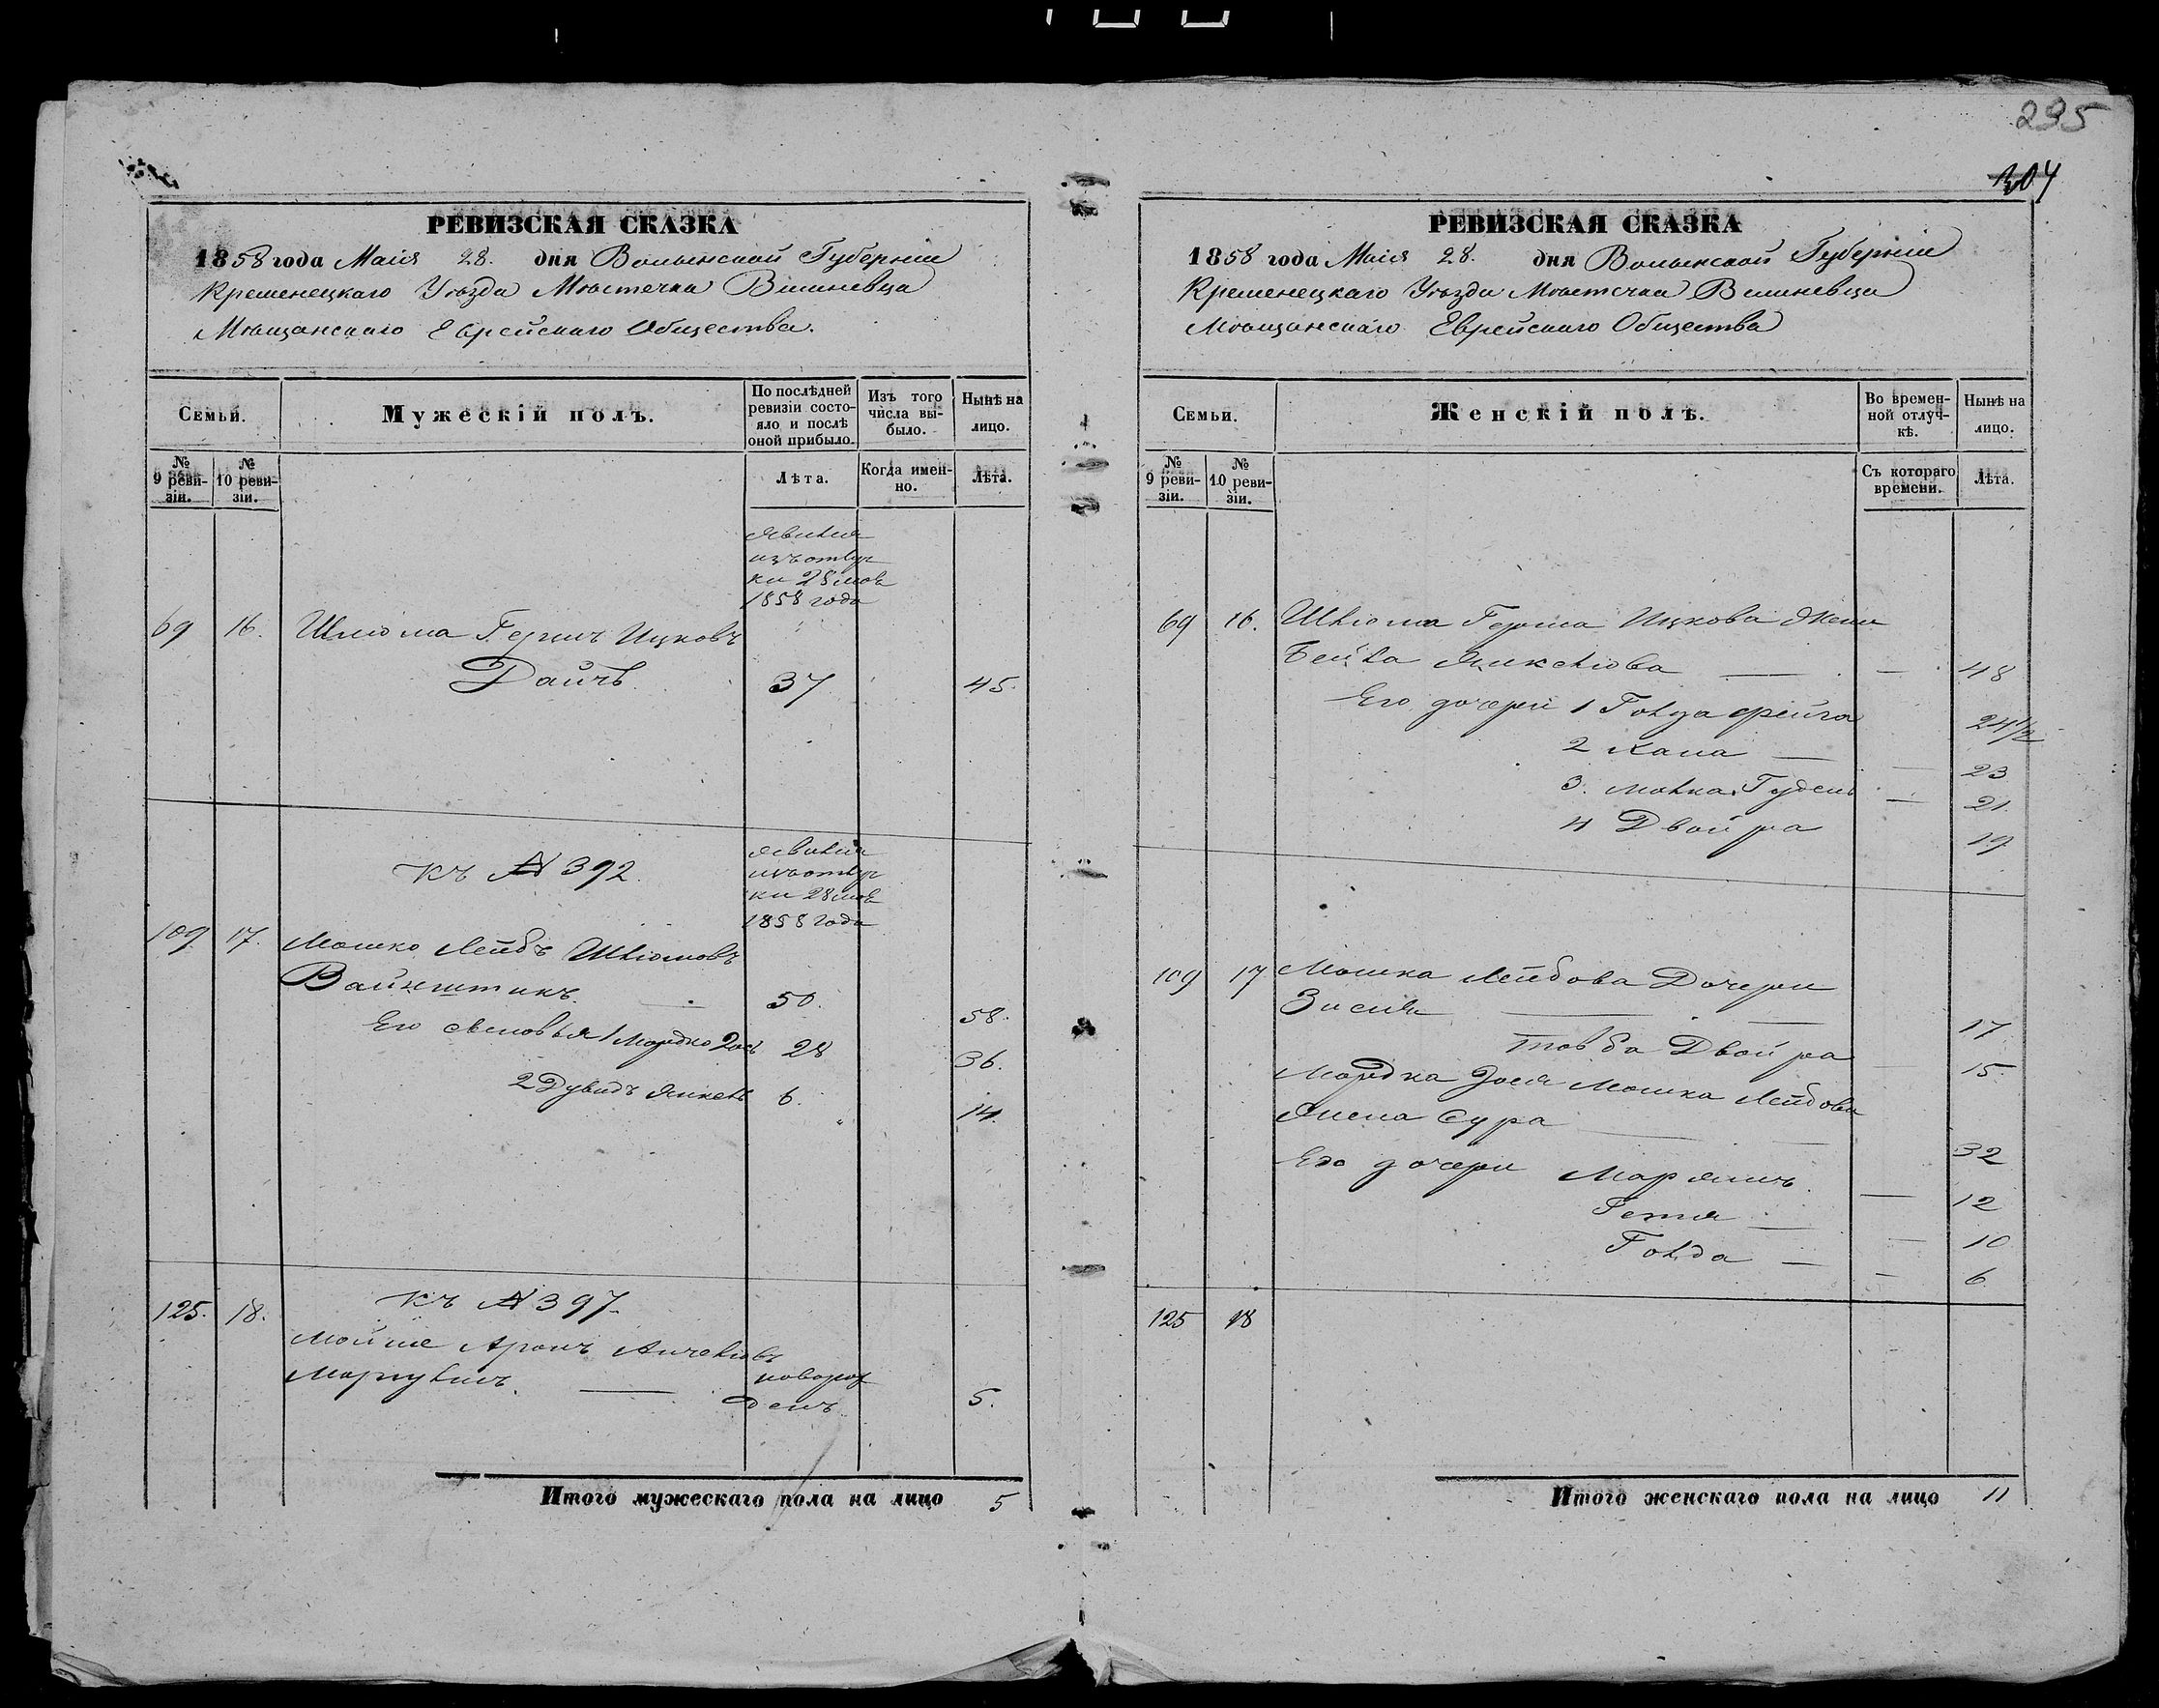 295
304
РЕВИЗСКАЯ СКАЗКА
1858 года Маія 28. дня Волынской Губерніи
Кременецкаго Уѣзда Мѣстечка Вишневца
Мѣщанскаго Еврейскаго Общества.
Семьи.
Мужескій полъ.
По послѣдней ревизіи состояло и послѣ оной прибыло.
Изъ того числа выбыло.
Нынѣ на лицо.
№ 9 ревизіи.
№ 10 ревизіи.
Лѣта.
Когда именно.
Лѣта.
явился
изъ отлуч
ки 28 маѣ
1858 года
69 16. Шлиома Гершъ Ицковъ
Дайчъ 37 45.
къ № 392.
явился
изъ отлуч
ки 28 маѣ
1858 года
109 17. Мошко Лейбъ Шліомовъ
Вайнштикъ. 50. 58.
Его сыновья 1 Мордко Зось 28 36.
2 Дувидъ Янкель 6. 14.
125. 18. къ № 397.
Мойше Аронъ Анчеліовъ
Маргулисъ. новорож
денъ 5.
Итого мужескаго пола на лицо 5
РЕВИЗСКАЯ СКАЗКА
1858 года Маія 28. дня Волынской Губерніи
Кременецкаго Уѣзда Мѣстечка Вишневца
Мѣщанскаго Еврейскаго Общества
Семьи.
Женскій полъ.
Во временной отлучкѣ.
Нынѣ на лицо.
№ 9 ревизіи.
№ 10 ревизіи.
Съ котораго времени.
Лѣта.
69 16. Шліома Герша Ицкова Жена
Бейла Янкеліова 48
Его дочери 1 Голда Фейга 24 1/2
2 Хана 23
3. Малка Гудель 21.
4 Двойра 19
109 17 Мошка Лейбова Дочери
Зисля 17
Товба Двойра 15
Мордка Зося Мошка Лейбова
Жена Сура 32
Его дочери Марьямъ 12
Гетя 10
Голда 6
125 18
Итого женскаго пола на лицо 11